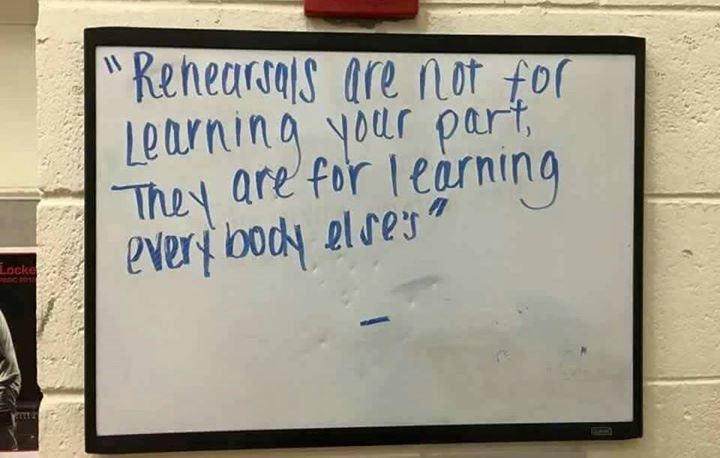 "Rehearsals are not for
Learning your part,
They are for learning
everybody else's"
–
Locke